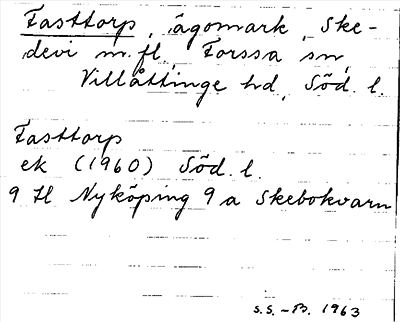 Fasttorp, ägomark, Ske-
devi m.fl., Forssa sn,
Villåttinge hd, Söd. l.
Fasttorp
ek (1960) Söd. l.
9 H Nyköping 9 a Skebokvarn
S.S. – B. 1963